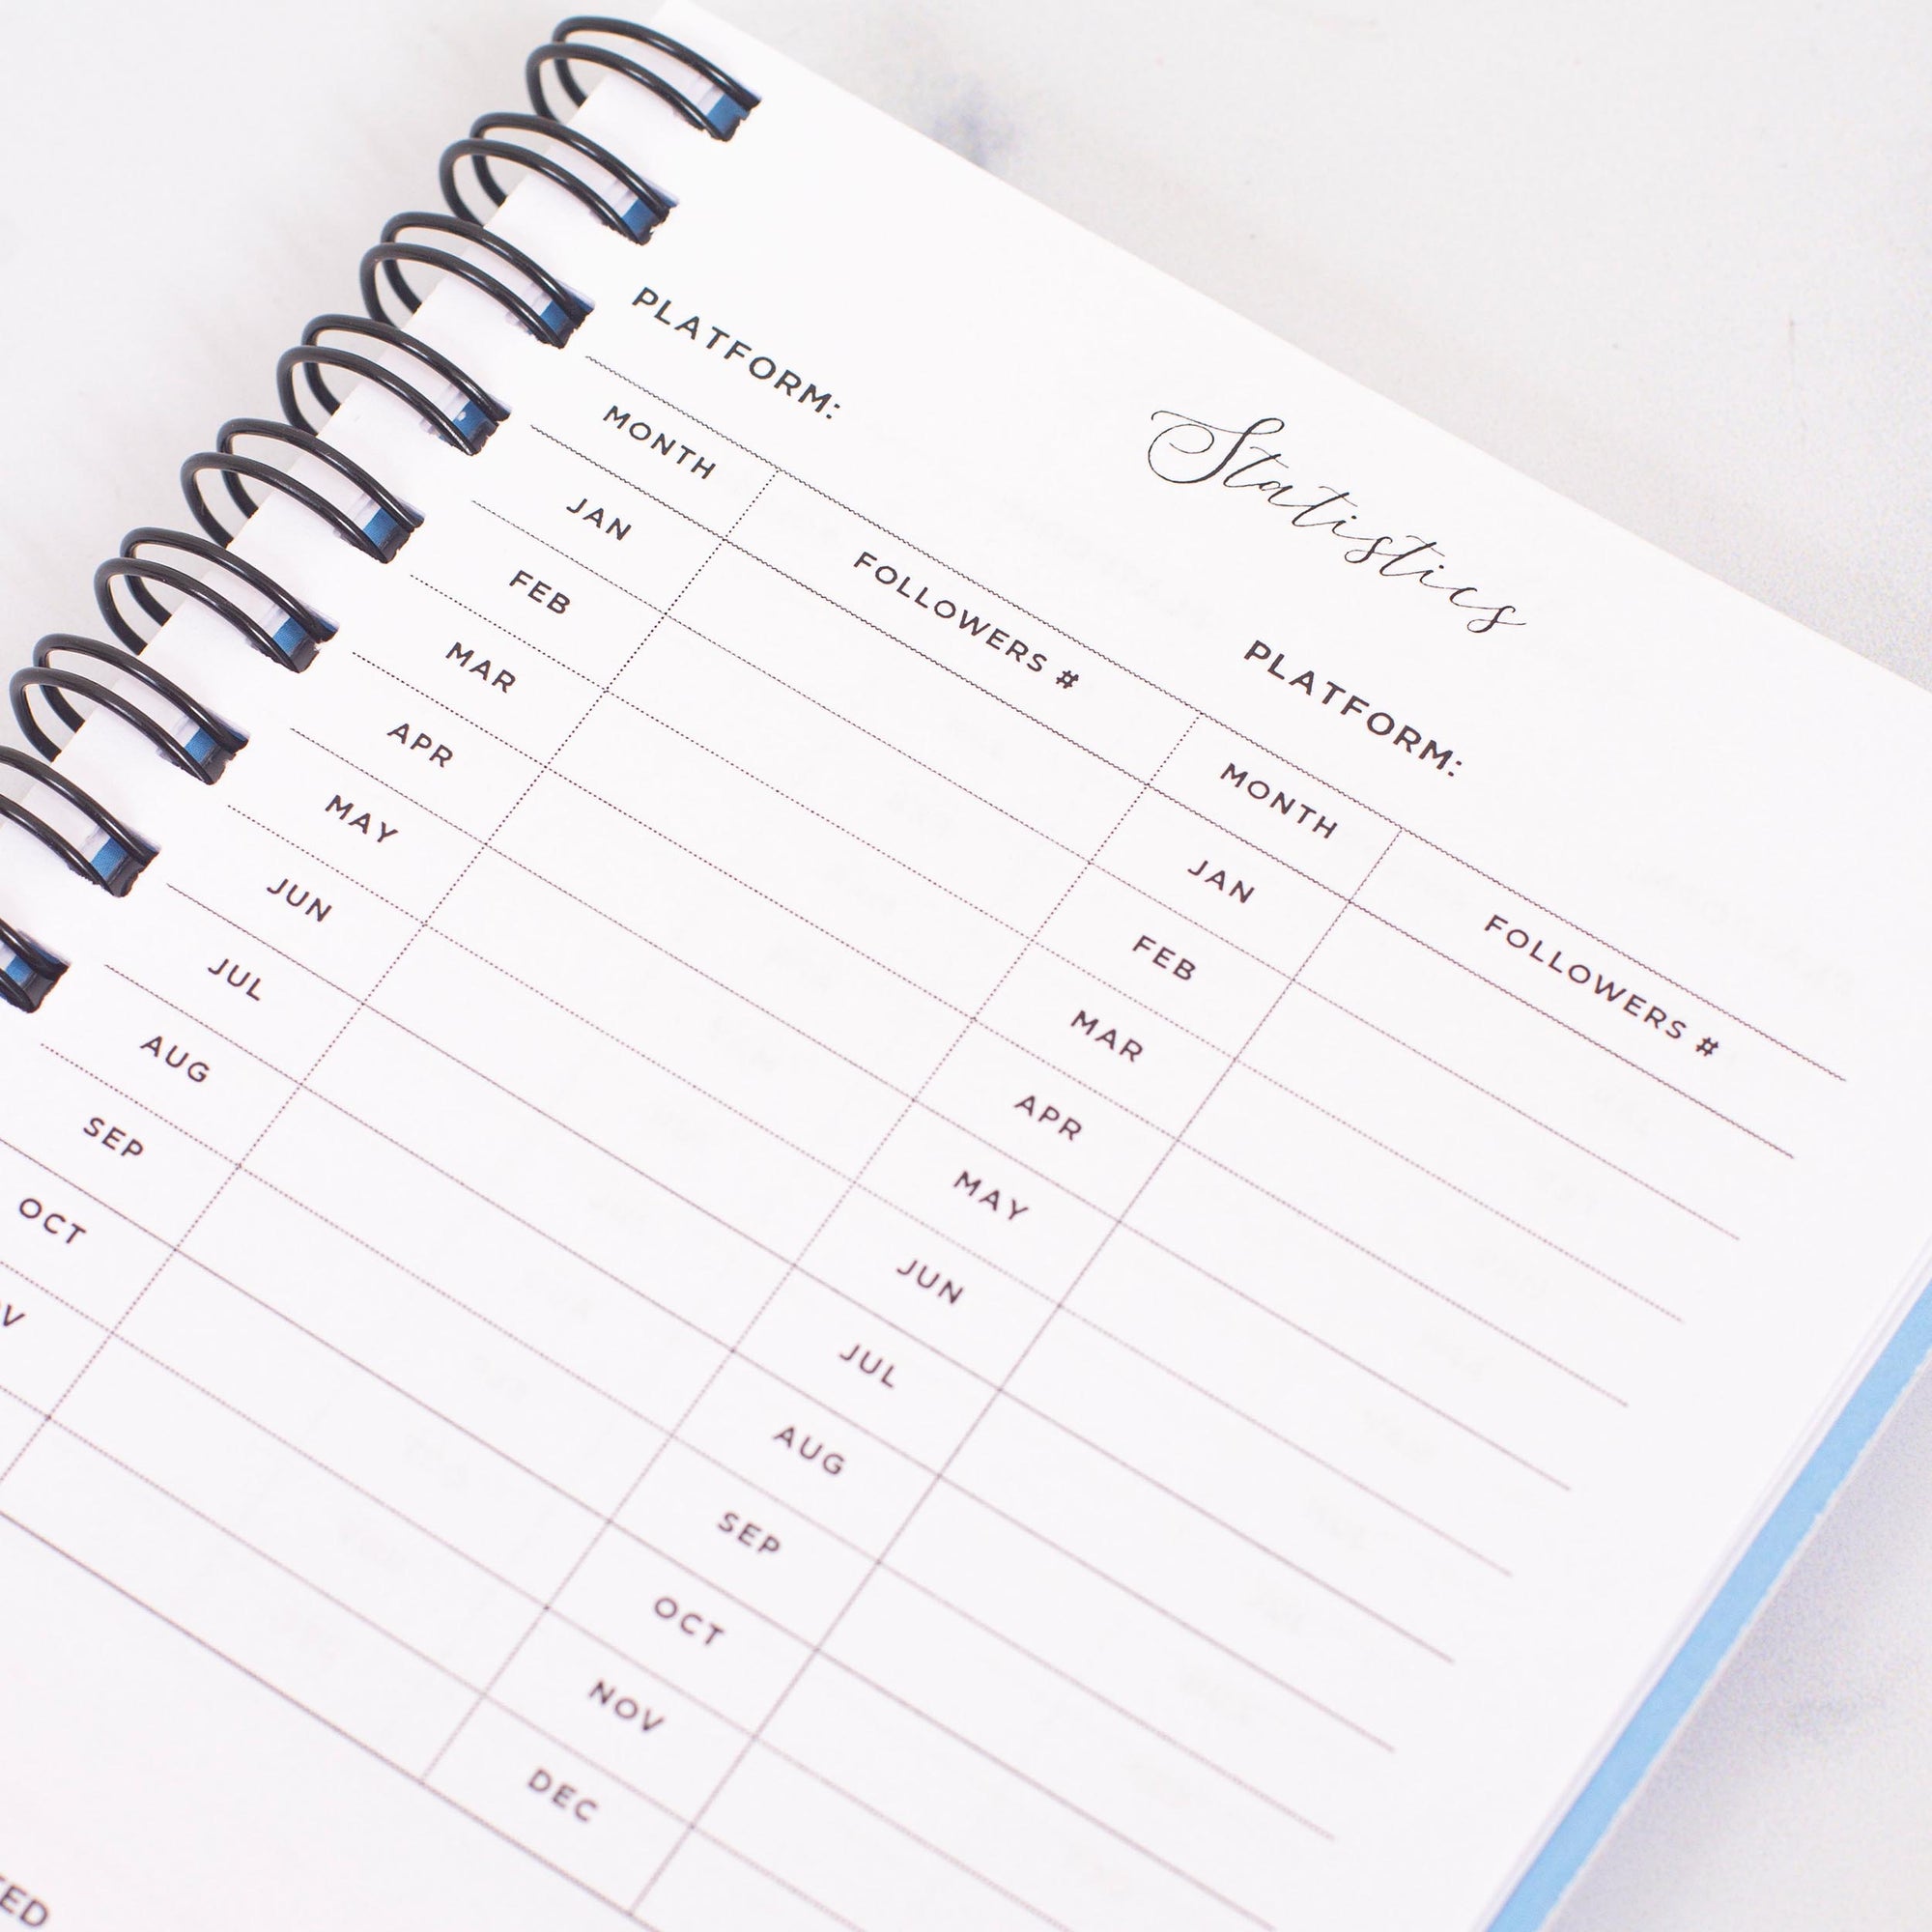 Statistics
PLATFORM:
MONTH FOLLOWERS #
JAN
FEB
MAR
APR
MAY
JUN
JUL
AUG
SEP
OCT
PLATFORM:
MONTH FOLLOWERS #
JAN
FEB
MAR
APR
MAY
JUN
JUL
AUG
SEP
OCT
NOV
DEC